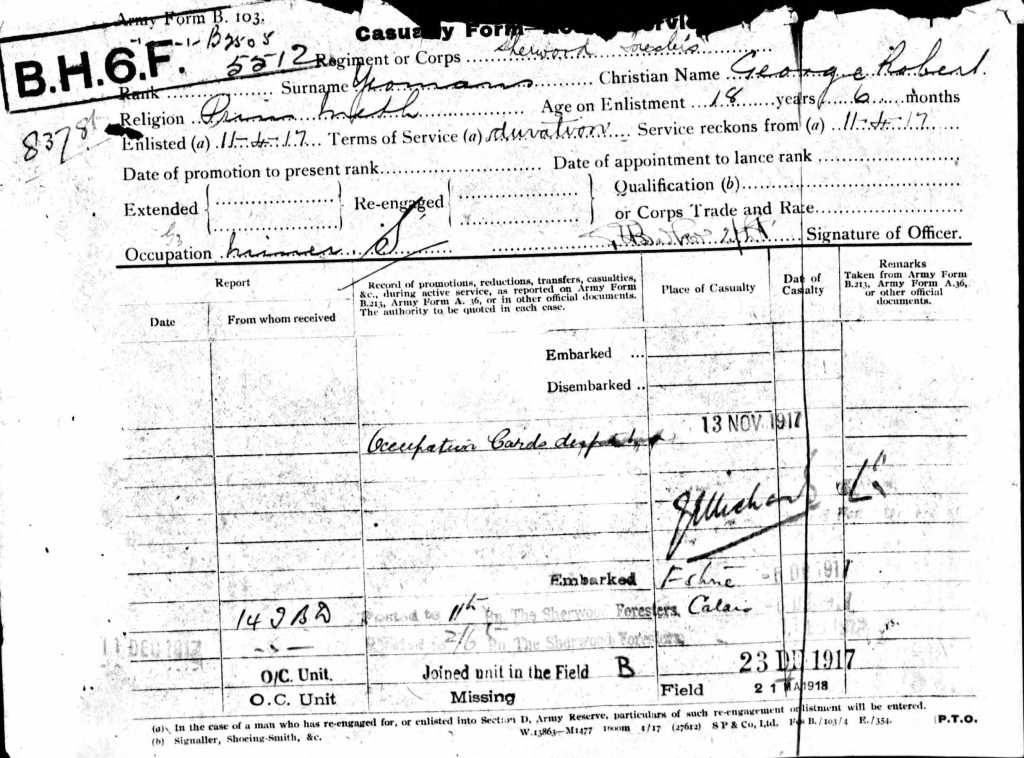 Army Form B. 103.
Casualty Form
B2505
B.H.6.F.
5512 Regiment or Corps Sherwood Foresters
Rank Surname Yeomans Christian Name George Robert
Religion Prim Meth Age on Enlistment 18 years 6 months
8378
Enlisted (a) 11-4-17 Terms of Service (a) duration Service reckons from (a) 11-4-17
Date of promotion to present rank Date of appointment to lance rank
Extended Re-engaged Qualification (b)
or Corps Trade and Rate
Occupation miner Signature of Officer.
Report
Date
From whom received
Record of promotions, reductions, transfers, casualties,
&c., during active service, as reported on Army Form
B.213, Army Form A. 36, or in other official documents.
The authority to be quoted in each case.
Place of Casualty
Date of
Casualty
Remarks
Taken from Army Form
B.213, Army Form A.36,
or other official
documents.
Embarked ...
Disembarked ..
Occupation Cards 13 NOV 1917
Embarked
14 I B D Posted to 11th Bn. The Sherwood Foresters, Calais
11 DEC 1917 2/6 Bn. The Sherwood Foresters
O/C. Unit. Joined unit in the Field B 23 DE 1917
O.C. Unit Missing Field 21 MA 1918
(a) In the case of a man who has re-engaged for, or enlisted into Section D, Army Reserve, particulars of such re-engagement or enlistment will be entered.
(b) Signaller, Shoeing-Smith, &c. W.13863—M1477 1/17 (27612) S P & Co, Ltd. B./103/4 E./354. P.T.O.